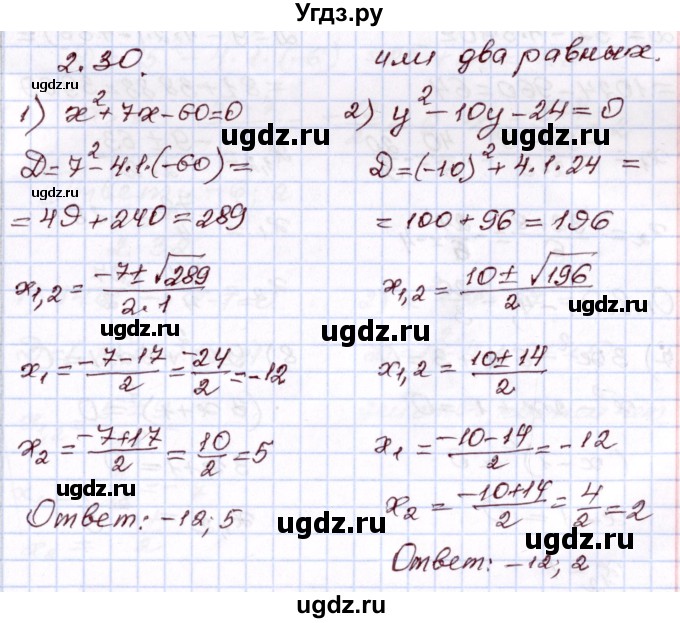 Угдз.ру
2.30.
или два равных.
1) x² + 7x - 60 = 0
D = 7² - 4·1·(-60) =
= 49 + 240 = 289
x₁,₂ = (-7 ± √289) / (2·1)
x₁ = (-7-17)/2 = -24/2 = -12
x₂ = (-7+17)/2 = 10/2 = 5
Ответ: -12; 5
2) y² - 10y - 24 = 0
D = (-10)² + 4·1·24 =
= 100 + 96 = 196
x₁,₂ = (10 ± √196) / 2
x₁,₂ = (10 ± 14) / 2
x₁ = (-10-14)/2 = -12
x₂ = (-10+14)/2 = 4/2 = 2
Ответ: -12; 2
ugdz.ru
ugdz.ru
ugdz.ru
ugdz.ru
ugdz.ru
ugdz.ru
ugdz.ru
ugdz.ru
ugdz.ru
ugdz.ru
ugdz.ru
ugdz.ru